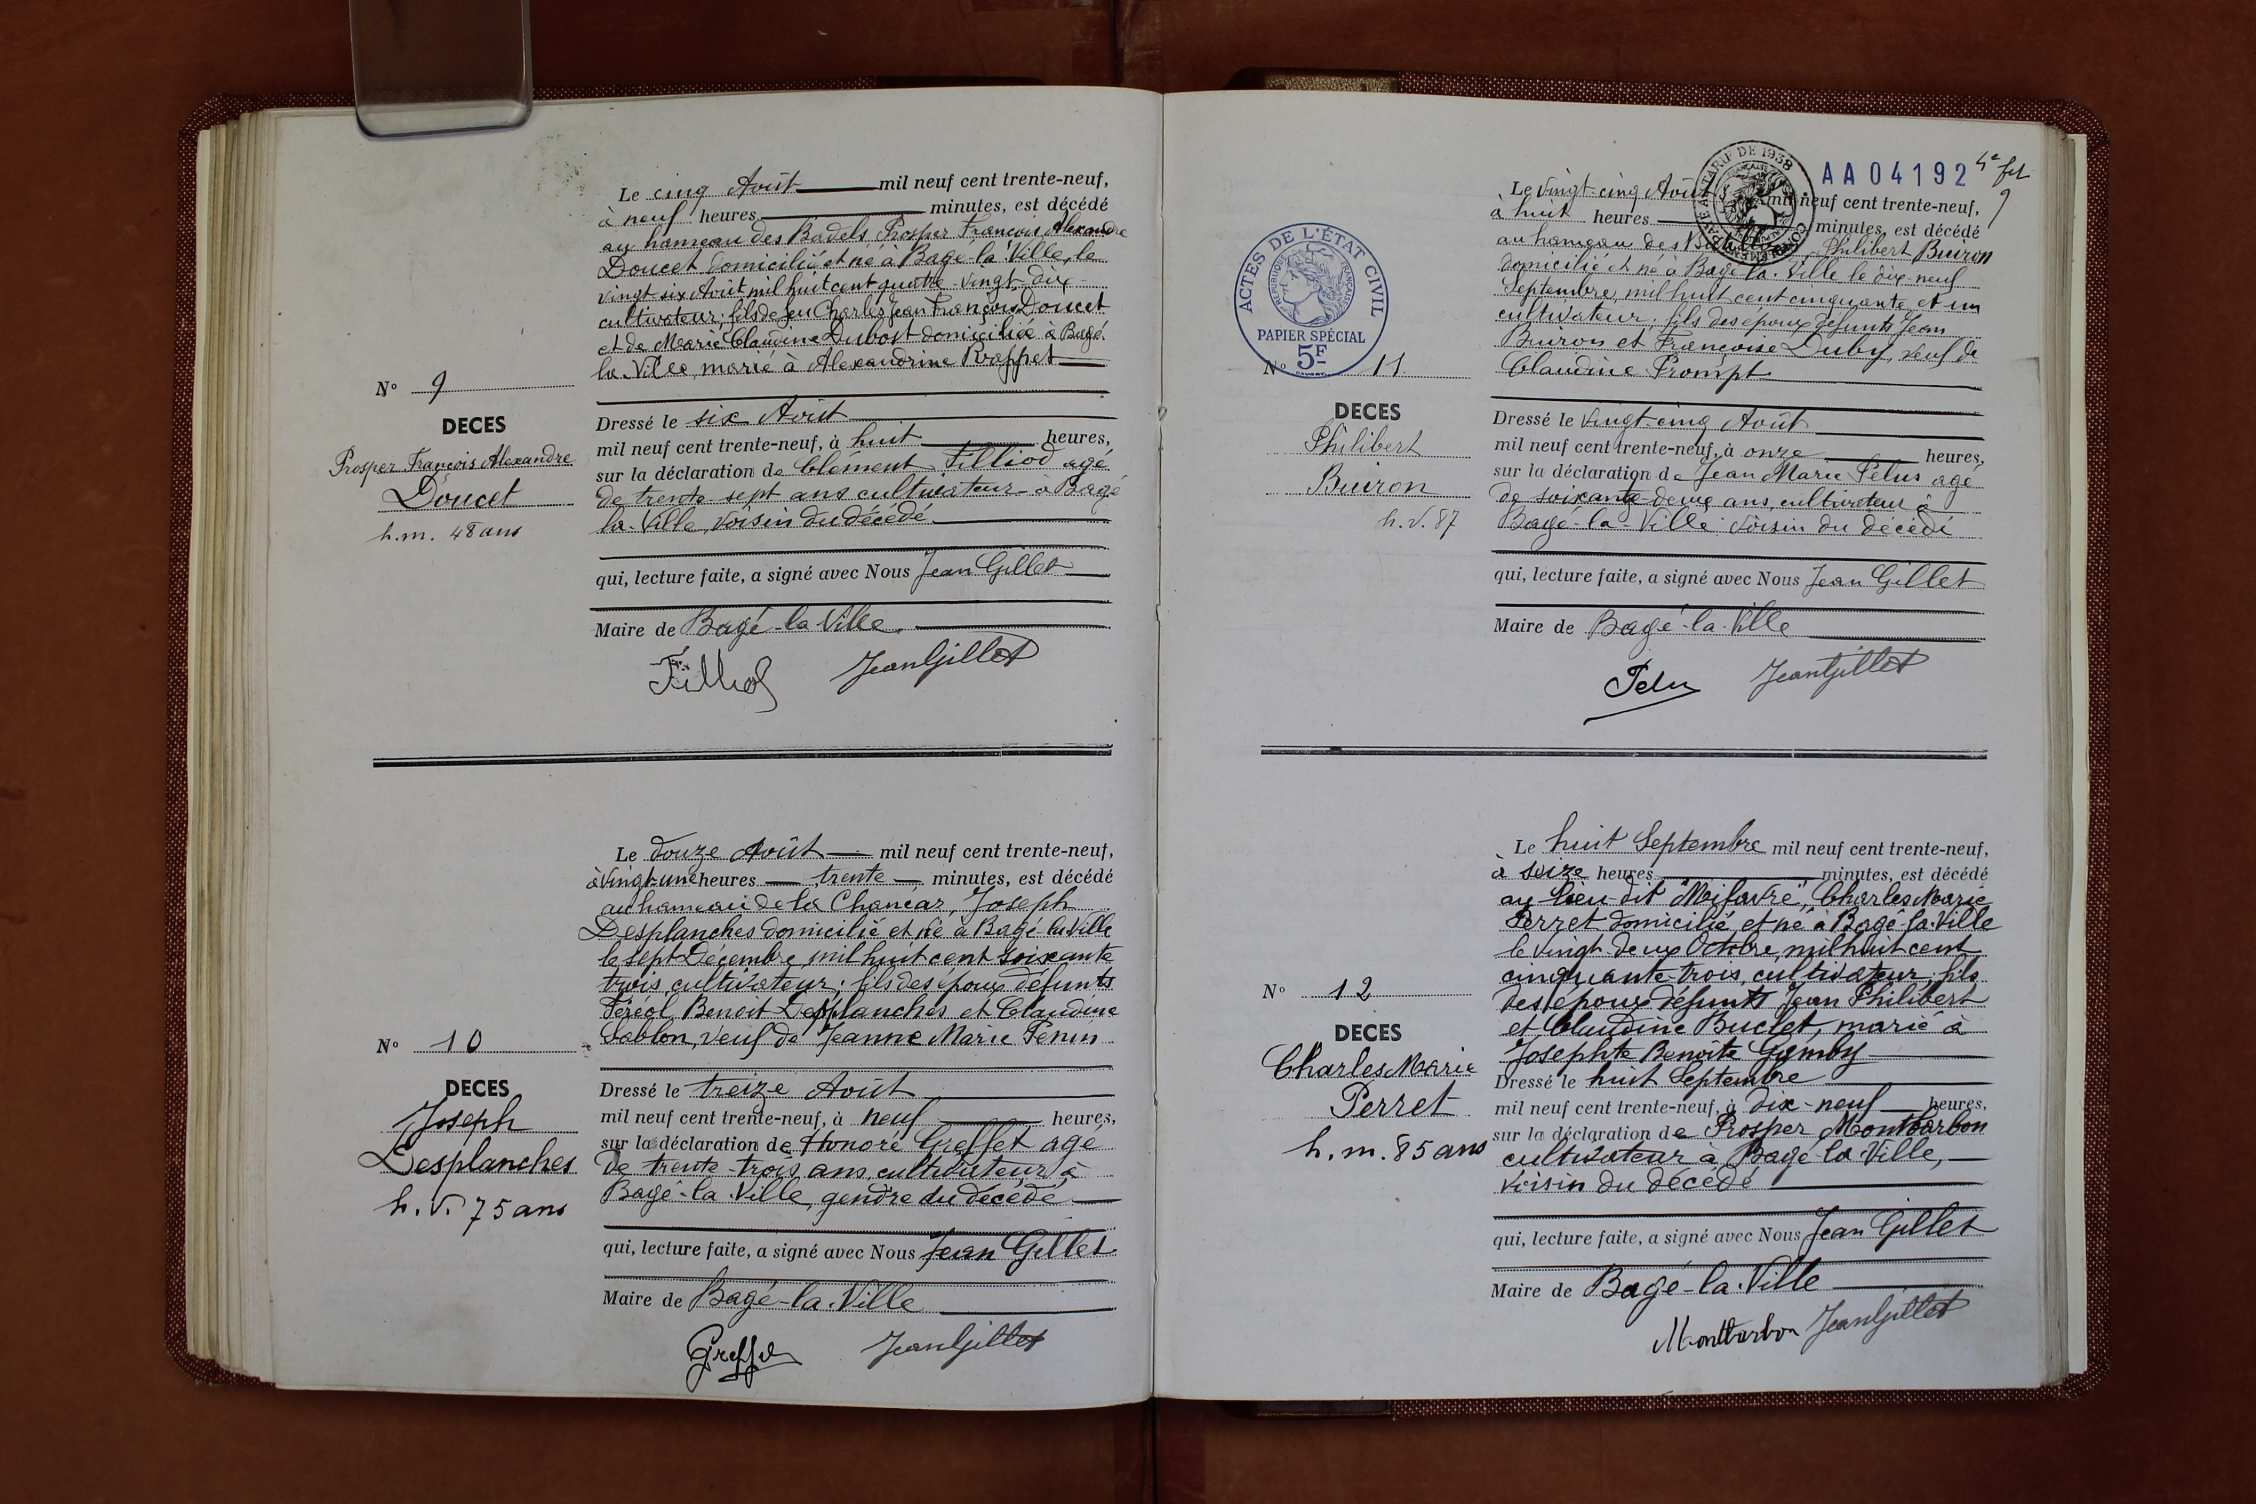 Le cinq Août mil neuf cent trente-neuf,
à neuf heures minutes, est décédé
au hameau des Badels Prosper François Alexandre
Doucet domicilié et né à Bagé-la-Ville, le
vingt-six Août mil huit cent quatre-vingt-dix
cultivateur; fils de feu Charles Jean François Doucet
et de Marie Claudine Dubost domiciliée à Bagé-
la-Ville, marié à Alexandrine
N° 9
DECES
Prosper François Alexandre
Doucet
h.m. 48 ans
Dressé le six Août
mil neuf cent trente-neuf, à huit heures,
sur la déclaration de Clément Filliod agé
de trente-sept ans cultivateur à Bagé
la-Ville, voisin du décédé.
qui, lecture faite, a signé avec Nous Jean Gillet
Maire de Bagé-la-Ville.
Filliod JeanGillet
Le douze Août mil neuf cent trente-neuf,
à vingt-une heures trente minutes, est décédé
au hameau de la Chanear, Joseph
Desplanches domicilié et né à Bagé-la-Ville
le sept Décembre mil huit cent soixante
trois, cultivateur; fils des époux défunts
Féréol Benoit Desplanches et Claudine
Sablon, veuf de Jeanne Marie Penin
N° 10
DECES
Joseph
Desplanches
h.v. 75 ans
Dressé le treize Août
mil neuf cent trente-neuf, à neuf heures,
sur la déclaration de Honoré Greffet agé
de trente-trois ans, cultivateur à
Bagé-la-Ville, gendre du décédé
qui, lecture faite, a signé avec Nous Jean Gillet
Maire de Bagé-la-Ville
Greffet JeanGillet
AA04192
4e fet
9
TARIF DE 1938
ACTES DE L'ÉTAT CIVIL
RÉPUBLIQUE FRANÇAISE
PAPIER SPÉCIAL
5F
Le vingt-cinq Août mil neuf cent trente-neuf,
à huit heures minutes, est décédé
au hameau des Philibert Buiron
domicilié et né à Bagé-la-Ville le dix-neuf
Septembre mil huit cent cinquante et un
cultivateur; fils des époux défunts Jean
Buiron et Françoise Duby, veuf de
Claudine Prompt
N° 11
DECES
Philibert
Buiron
h.v. 87
Dressé le vingt-cinq Août
mil neuf cent trente-neuf, à onze heures,
sur la déclaration de Jean Marie Pelus agé
de soixante-deux ans, cultivateur à
Bagé-la-Ville voisin du décédé
qui, lecture faite, a signé avec Nous Jean Gillet
Maire de Bagé-la-Ville
Pelu JeanGillet
Le huit Septembre mil neuf cent trente-neuf,
à seize heures minutes, est décédé
au lieu-dit "Moifavre", Charles Marie
Perret domicilié et né à Bagé-la-Ville
le vingt-deux Octobre mil huit cent
cinquante-trois, cultivateur; fils
des époux défunts Jean Philibert
et Claudine Buclet, marié à
Josephte Benoîte Gamby
N° 12
DECES
Charles Marie
Perret
h.m. 85 ans
Dressé le huit Septembre
mil neuf cent trente-neuf, à dix-neuf heures,
sur la déclaration de Prosper Montbarbon
cultivateur à Bagé-la-Ville,
voisin du décédé
qui, lecture faite, a signé avec Nous Jean Gillet
Maire de Bagé-la-Ville
Montbarbon JeanGillet